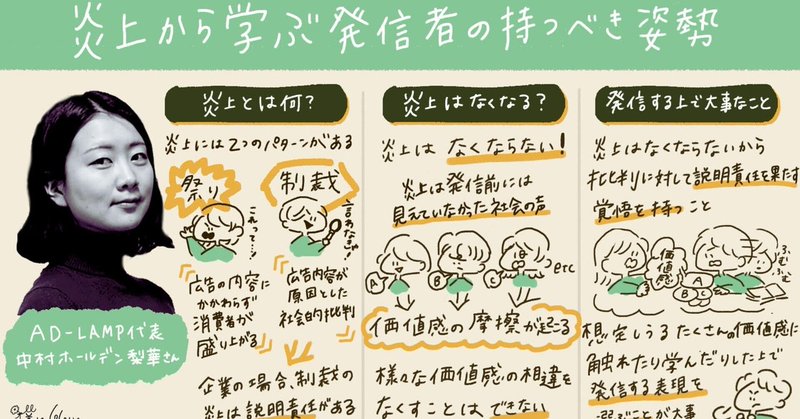 炎上から学ぶ発信者の持つべき姿勢
AD-LAMP代表
中村ホールデン梨華さん
炎上とは何?
炎上には2つのパターンがある
祭り
制裁
これって…!
言わなきゃ!
広告の内容に
かかわらず
消費者が
盛り上がる
広告内容が
原因とした
社会的批判
企業の場合、制裁の
炎上は説明責任がある
炎上はなくなる?
炎上は なくならない!
炎上は発信前には
見えていなかった社会の声
A
B
C
etc
価値感の摩擦が起こる
様々な価値感の相違を
なくすことは できない
発信する上で大事なこと
炎上はなくならないから
批判に対して説明責任を果たす
覚悟を持つこと
価値感
A
B C
ふむふむ
想定しうるたくさんの価値感に
触れたり学んだりした上で
発信する表現を
選ぶことが大事